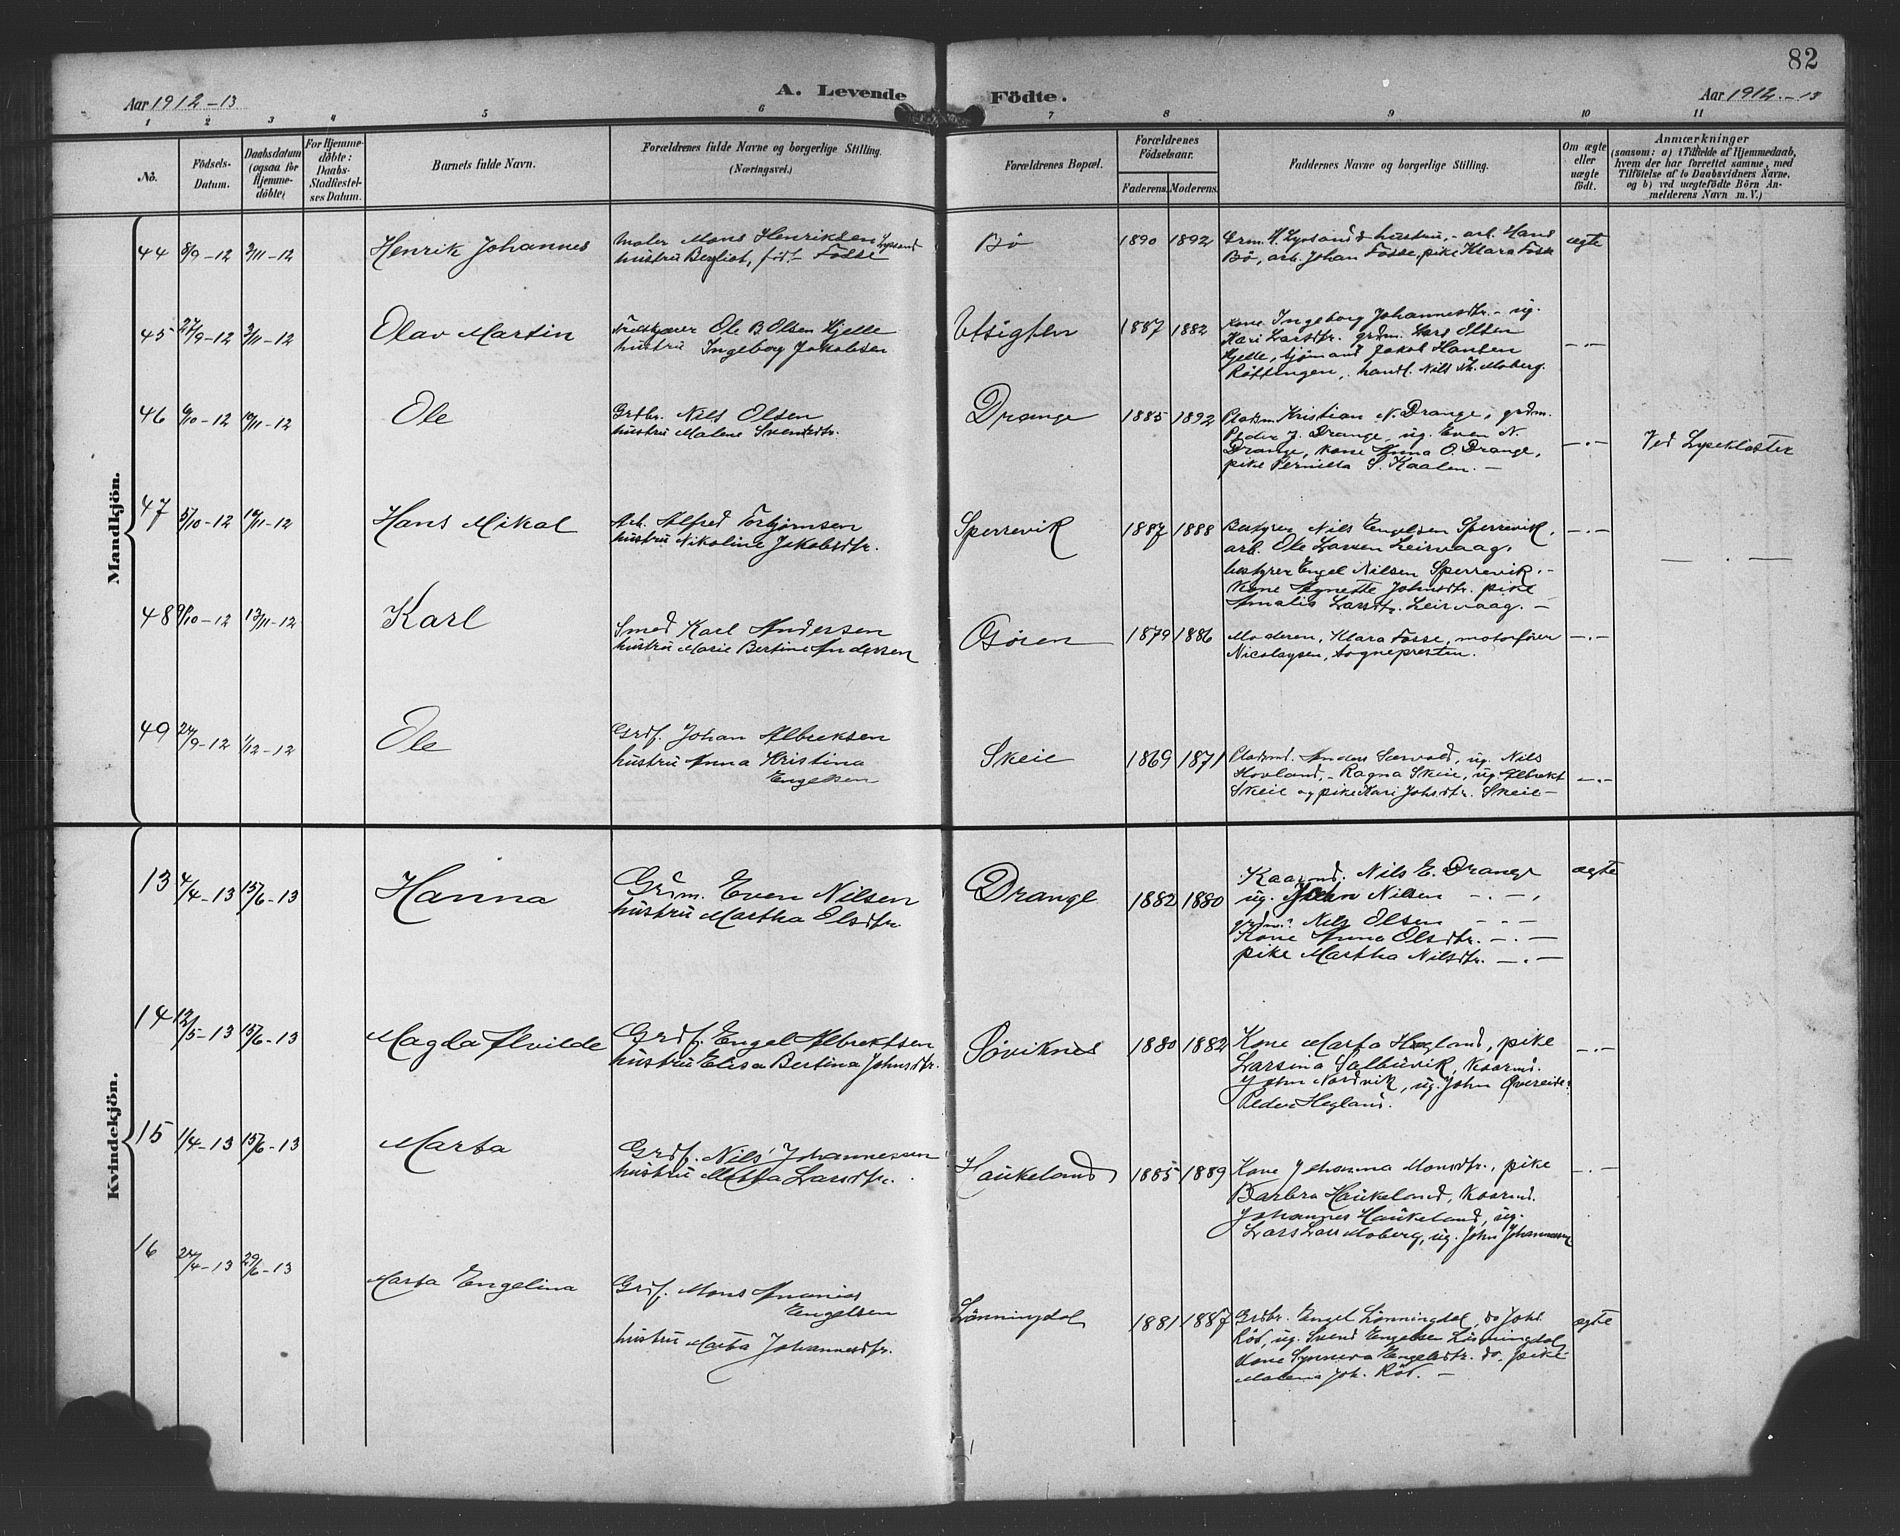 82
Aar 1912-13
A. Levende Födte.
Aar 1912-13
1 2 3 4 5 6 7 8 9 10 11
No.
Födsels-Datum.
Daabsdatum (ogsaa for Hjemme-döbte)
For Hjemme-döbte: Daabs-Stadfæstel-ses Datum.
Barnets fulde Navn.
Forældrenes fulde Navne og borgerlige Stilling. (Næringsvei.)
Forældrenes Bopæl.
Forældrenes Födselsaar.
Faderens. Moderens.
Faddernes Navne og borgerlige Stilling.
Om ægte eller uægte födt.
Anmærkninger
(saasom: a) i Tilfælde af Hjemmedaab,
hvem der har forrettet samme, med
Tilföielse af to Daabsvidners Navne.
og b) ved uægtefödte Börn An-
melderens Navn m. V.)
Mandkjön.
44 8/9-12 3/11-12 Henrik Johannes
Maler Mons Henriksen Lysand
hustru Bergliot, født Fosse
Bø 1890 1892
Grm. H. Lysand & hustru, - arb. Hans
Bø, arb. Johan Fosse, pike Klara Fosse
ægte
45 27/9-12 3/11-12 Olav Martin
Ole B. Olsen Hjelle
hustru Ingeborg Jakobsen
Utsigten 1887 1882
Kone Ingeborg Johannesdtr. - ug.
Kari Larsdtr. grdm. Lars Olsen
Hjelle, sjömand Jakob Hansen
Röttingen, handl. Nils M. Moberg.
-.-
46 6/10-12 10/11-12 Ole
Grdbr. Nils Olsen
hustru Malene Svendsdtr.
Drange 1885 1892
Pladsm. Kristian N. Drange, grdm.
Peder J. Drange, ug. Even N.
Drange, kone Anna O. Drange,
pike Pernilla S. Kaalen. -
-.-
Ved Lysekloster
47 5/10-12 10/11-12 Hans Mikal
Arb. Alfred Torbjørnsen
hustru Nikoline Jakobsdtr.
Sperrevik 1887 1888
Bestyrer Nils Engelsen Sperrevik,
arb. Ole Larsen Leirvaag,
bestyrer Engel Nilsen Sperrevik. -
Kone Agnette Johnsdtr. pike
Amalia Larsdtr. Leirvaag. -
-.-
- . -
48 9/10-12 13/11-12 Karl
Smed Karl Andersen
hustru Marie Bertine Andersen
Osøren 1879 1886
Moderen, Klara Fosse, motorfører
Nicolaysen, sognepresten.
-.-
49 24/9-12 1/12-12 Ole
Grdf. Johan Albrektsen
hustru Anna Kristina
Engelsen
Skeie 1869 1871
Pladsmd. Anders Sørvold, ug. Nils
Hovland, - Ragna Skeie, ug. Albrekt
Skeie og pike Kari Johsdtr. Skeie -
-.-
Kvindekjön.
13 4/4-13 15/6-13 Hanna
Grdm. Even Nilsen
hustru Martha Olsdtr.
Drange 1882 1880
Kaarmd. Nils E. Drange
ug. John Nilsen -.-,
grdm. Nils Olsen - - -
Kone Anna Olsdtr. -.-
pike Martha Nilsdtr. -.-
ægte
14 12/5-13 15/6-13 Magda Alvilde
Grdf. Engel Albrektsen
hustru Elisa Bertina Johnsdtr.
Søviknes 1880 1882
Kone Marta Hegland, pike
Larsina Salbuvik, Kaarmd.
John Nordvik, ug. John Øvereide,
Peder Hegland.
-.-
15 1/4-13 15/6-13 Marta
Grdf. Nils Johannessen
hustru Marta Larsdtr.
Haukeland 1885 1889
Kone Johanna Monsdtr., pike
Barbra Haukeland, Kaarmd.
Johannes Haukeland, ug.
Lars Lars Moberg, ug. John Johannessen
-.-
16 24/4-13 29/6-13 Marta Engelina
Grdf. Mons Ananias
Engelsen
hustru Marta Johannesdtr.
Lønningdal 1881 1887
Grdbr. Engel Lønningdal, do Joh.
Röd, ug. Svend Engelsen Lønningdal
Kone Synneva Engelsdtr. do. pike
Malena Joh. Röd. -
ægte